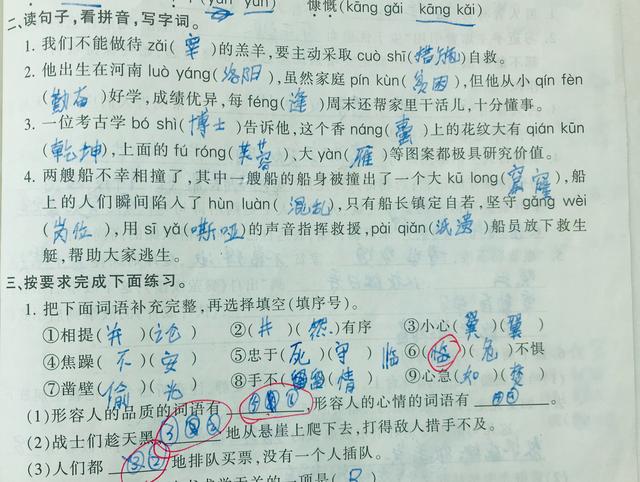 慷慨(kāng gǎi kāng kǎi)
二、读句子,看拼音,写字词。
1. 我们不能做待 zǎi(宰)的羔羊,要主动采取 cuò shī(措施)自救。
2. 他出生在河南 luò yáng(洛阳),虽然家庭 pín kùn(贫困),但他从小 qín fèn
(勤奋)好学,成绩优异,每 féng(逢)周末还帮家里干活儿,十分懂事。
3. 一位考古学 bó shì(博士)告诉他,这个香 náng(囊)上的花纹大有 qián kūn
(乾坤),上面的 fú róng(芙蓉)、大 yàn(雁)等图案都极具研究价值。
4. 两艘船不幸相撞了,其中一艘船的船身被撞出了一个大 kū long(窟窿),船
上的人们瞬间陷入了 hùn luàn(混乱),只有船长镇定自若,坚守 gǎng wèi
(岗位),用 sī yǎ(嘶哑)的声音指挥救援,pài qiǎn(派遣)船员放下救生
艇,帮助大家逃生。
三、按要求完成下面练习。
1. 把下面词语补充完整,再选择填空(填序号)。
①相提(并)(论) ②(井)(然)有序 ③小心(翼)(翼)
④焦躁(不)(安) ⑤忠于(职)(守) 临 ⑥(临)(危)不惧
⑦凿壁(偷)(光) ⑧手不( )( ) ⑨心急(如)(焚)
(1)形容人的品质的词语有 ,形容人的心情的词语有 。
(2)战士们趁天黑 地从悬崖上爬下去,打得敌人措手不及。
(3)人们都 ②地排队买票,没有一个人插队。
的一项是( B )